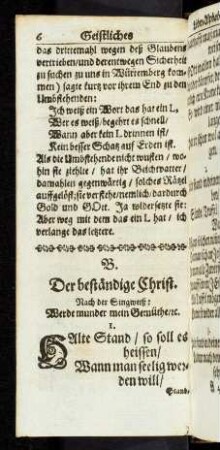 6 Geistliches
das drittemahl wegen deß Glaubens
vertrieben/und derentwegen Sicherheit
zu suchen zu uns in Würtemberg kom-
men) sagte kurtz vor ihrem End zu den
Umbstehenden:
Ich weiß ein Wort das hat ein L,
Wer es weiß/begehrt es schnell/
Wann aber kein L drinnen ist/
Kein besser Schatz auf Erden ist.
Als die Umbstehende nicht wusten/ wo-
hin sie ziehlte/ hat ihr Beichtvatter/
damahlen gegenwärtig/ solches Rätzel
auffgelöst: sie verstehe/nemlich/dardurch
Gold und GOtt. Ja widersetzte sie:
Aber weg mit dem das ein L hat/ ich
verlange das letztere.
B.
Der beständige Christ.
Nach der Singweiß:
Werde munder mein Gemüthe/rc.
1.
HAlte Stand/ so soll es
heissen/
Wann man seelig wer-
den will/
Stand,